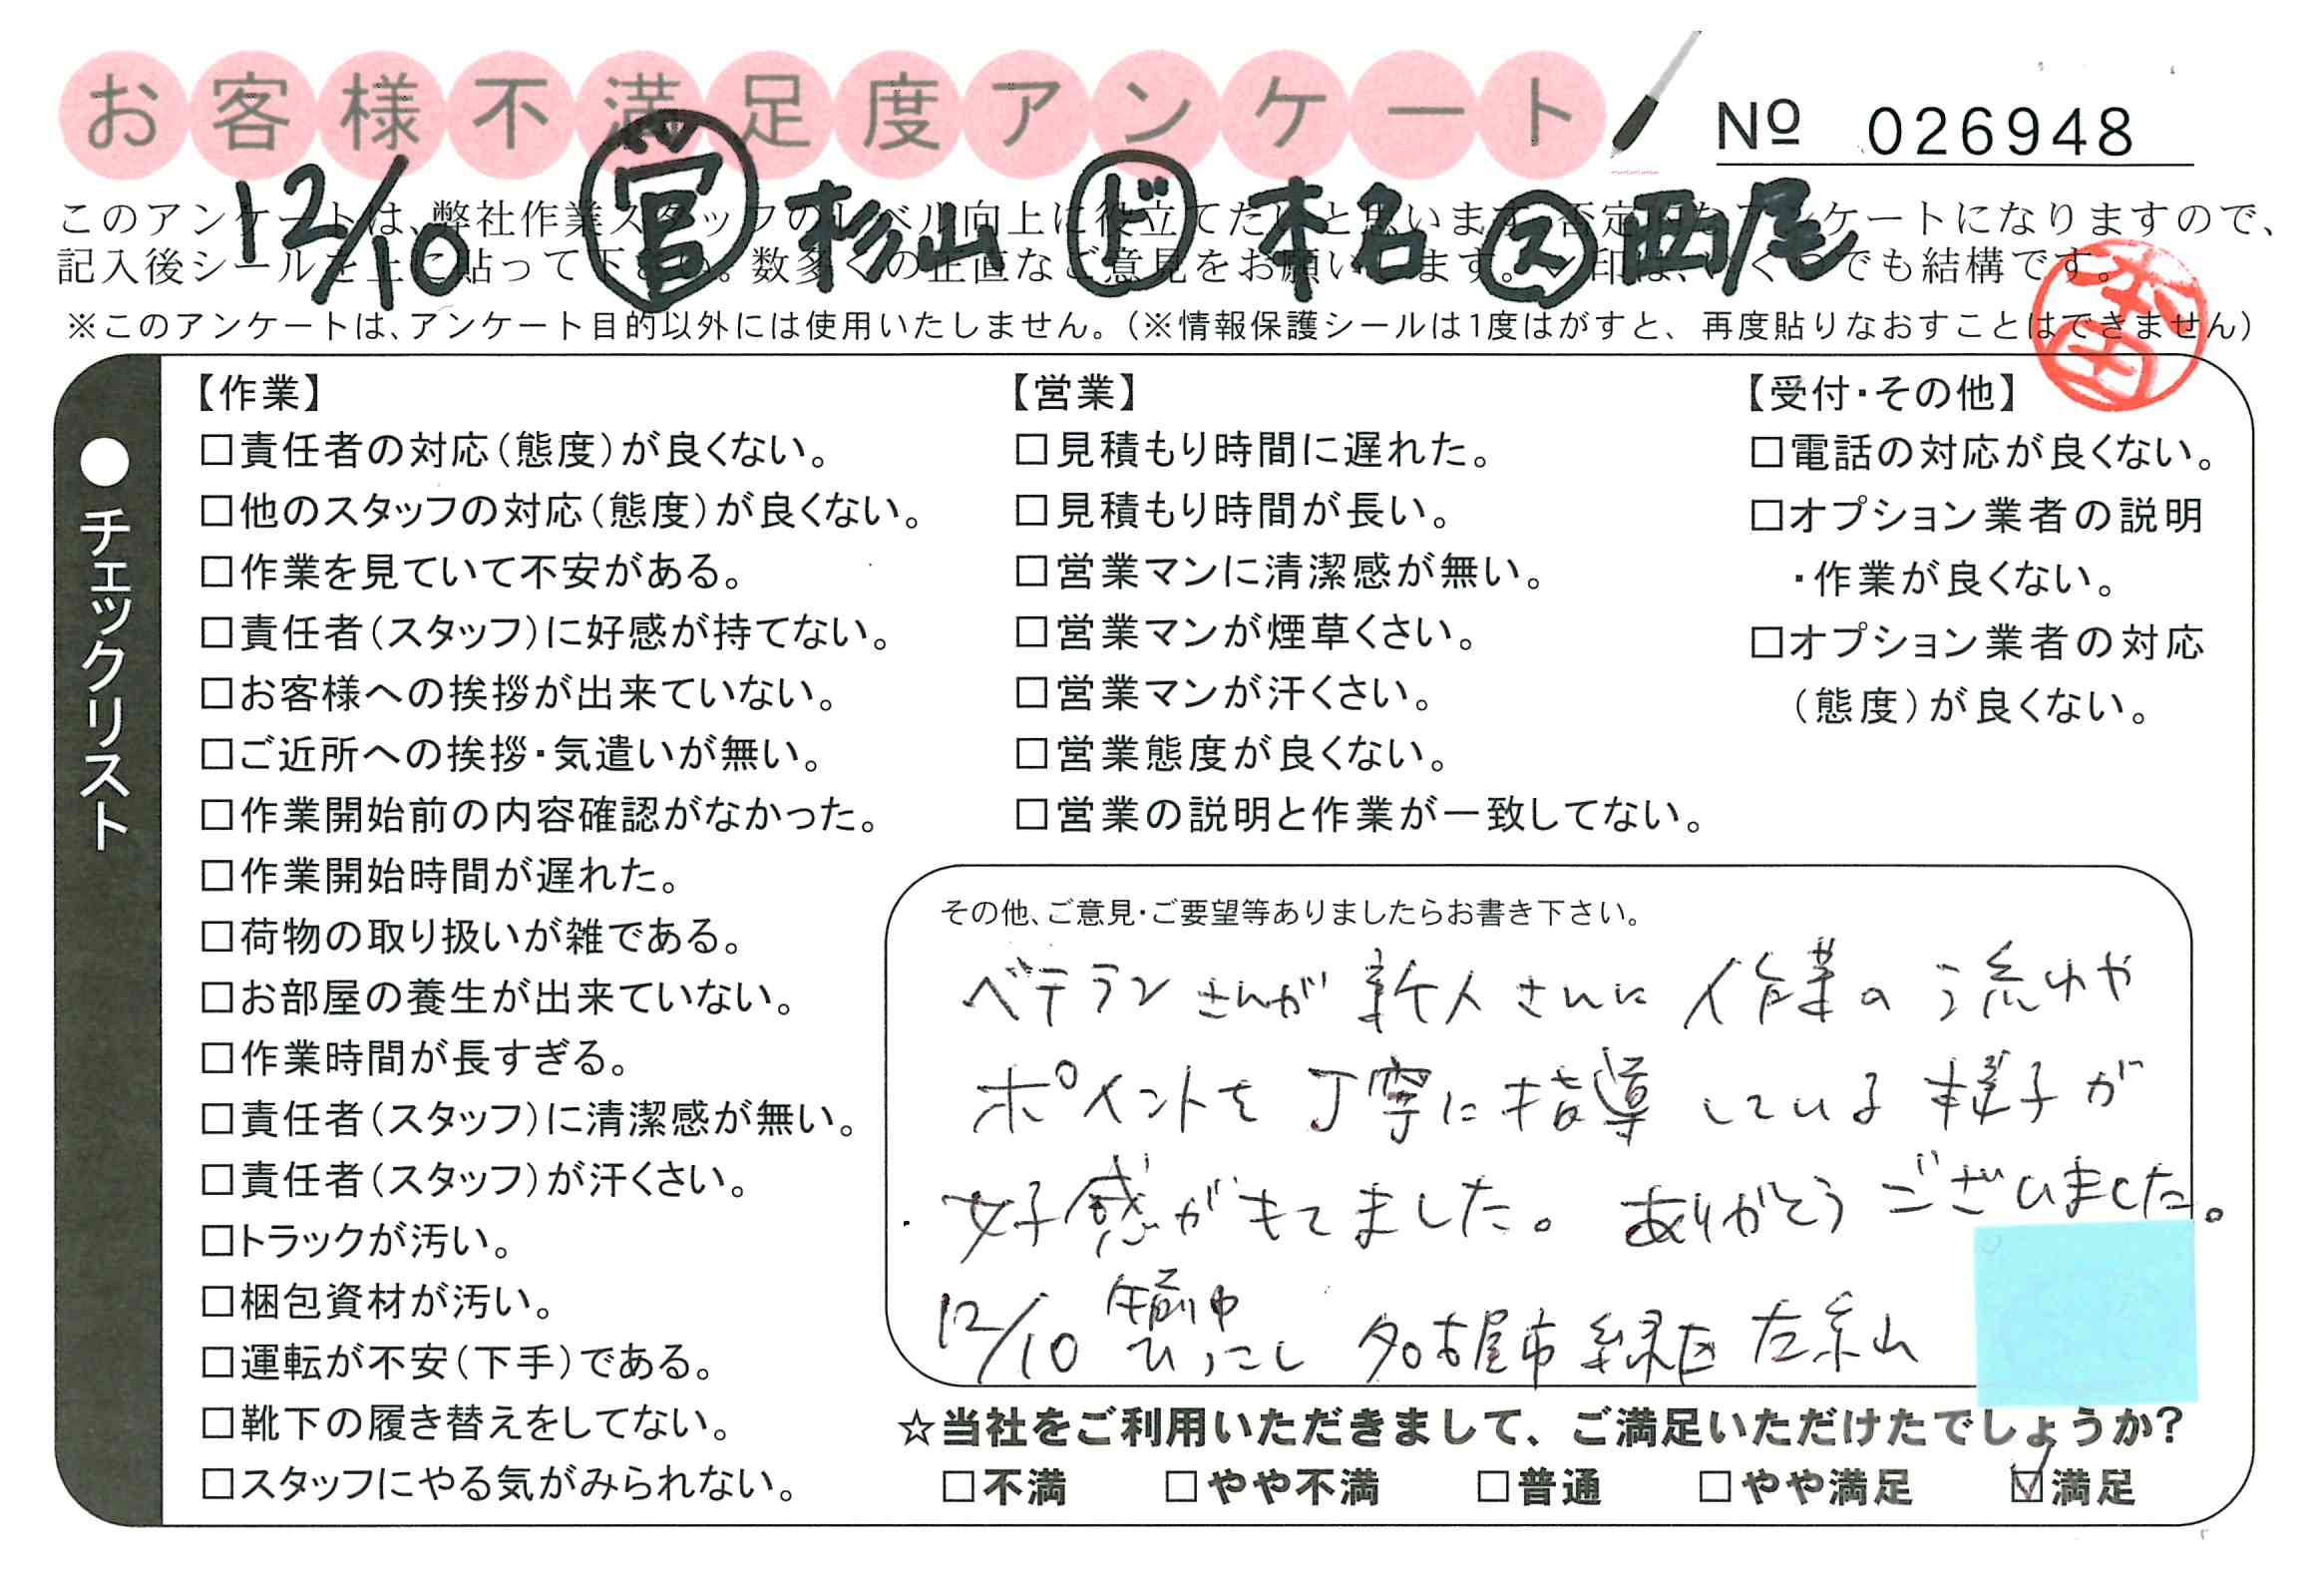 お客様不満足度アンケート
No 026948
12/10 営 杉山 ド 本名 ス 西尾
このアンケートは、弊社作業スタッフのレベル向上に役立てたいと思います。否定的なアンケートになりますので、
記入後シールを上に貼って下さい。数多くの正直なご意見をお願いします。レ印は、いくつでも結構です。
※このアンケートは、アンケート目的以外には使用いたしません。(※情報保護シールは1度はがすと、再度貼りなおすことはできません)
●チェックリスト
【作業】
□責任者の対応(態度)が良くない。
□他のスタッフの対応(態度)が良くない。
□作業を見ていて不安がある。
□責任者(スタッフ)に好感が持てない。
□お客様への挨拶が出来ていない。
□ご近所への挨拶・気遣いが無い。
□作業開始前の内容確認がなかった。
□作業開始時間が遅れた。
□荷物の取り扱いが雑である。
□お部屋の養生が出来ていない。
□作業時間が長すぎる。
□責任者(スタッフ)に清潔感が無い。
□責任者(スタッフ)が汗くさい。
□トラックが汚い。
□梱包資材が汚い。
□運転が不安(下手)である。
□靴下の履き替えをしてない。
□スタッフにやる気がみられない。
【営業】
□見積もり時間に遅れた。
□見積もり時間が長い。
□営業マンに清潔感が無い。
□営業マンが煙草くさい。
□営業マンが汗くさい。
□営業態度が良くない。
□営業の説明と作業が一致してない。
【受付・その他】
□電話の対応が良くない。
□オプション業者の説明
・作業が良くない。
□オプション業者の対応
(態度)が良くない。
その他、ご意見・ご要望等ありましたらお書き下さい。
ベテランさんが新人さんに作業の流れや
ポイントを丁寧に指導している様子が
好感がもてました。ありがとうございました。
12/10 午前中 ひっこし 名古屋市緑区左京山
☆当社をご利用いただきまして、ご満足いただけたでしょうか?
□不満 □やや不満 □普通 □やや満足 ☑満足